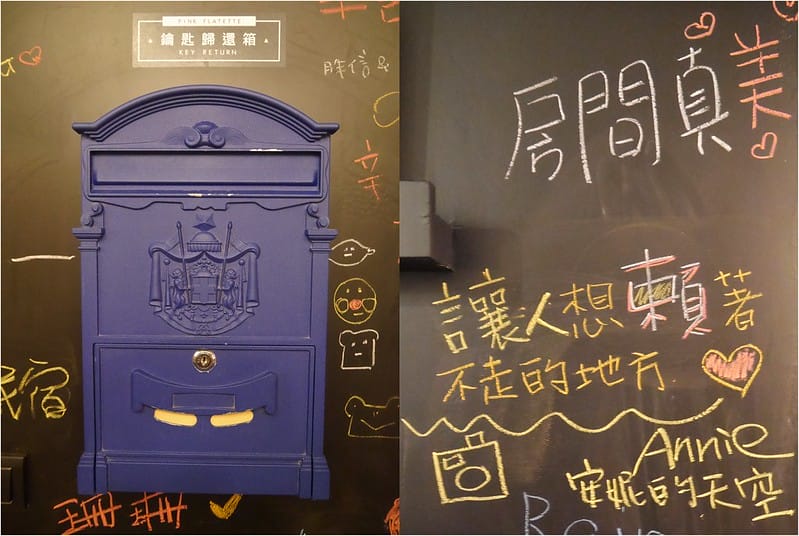 PINK FLATETTE
鑰匙歸還箱
KEY RETURN
民宿
房間真美
讓人想賴著
不走的地方.
Annie
安妮的天空